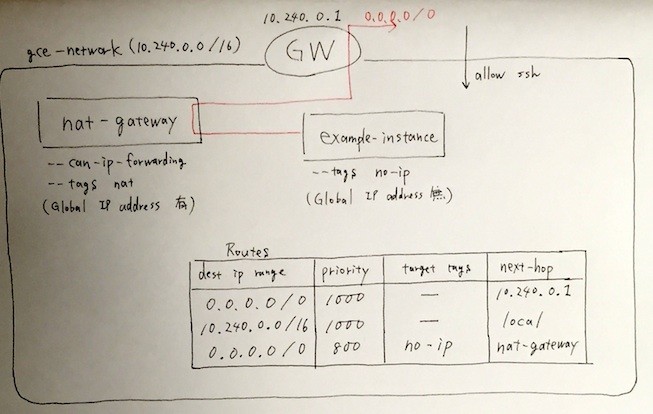 10.240.0.1 0.0.0.0/0
gce-network (10.240.0.0/16)
GW
allow ssh
nat-gateway
--can-ip-forwarding
--tags nat
(Global IP address 有)
example-instance
--tags no-ip
(Global IP address 無)
Routes
dest ip range priority target tags next-hop
0.0.0.0/0 1000 — 10.240.0.1
10.240.0.0/16 1000 — local
0.0.0.0/0 800 no-ip nat-gateway